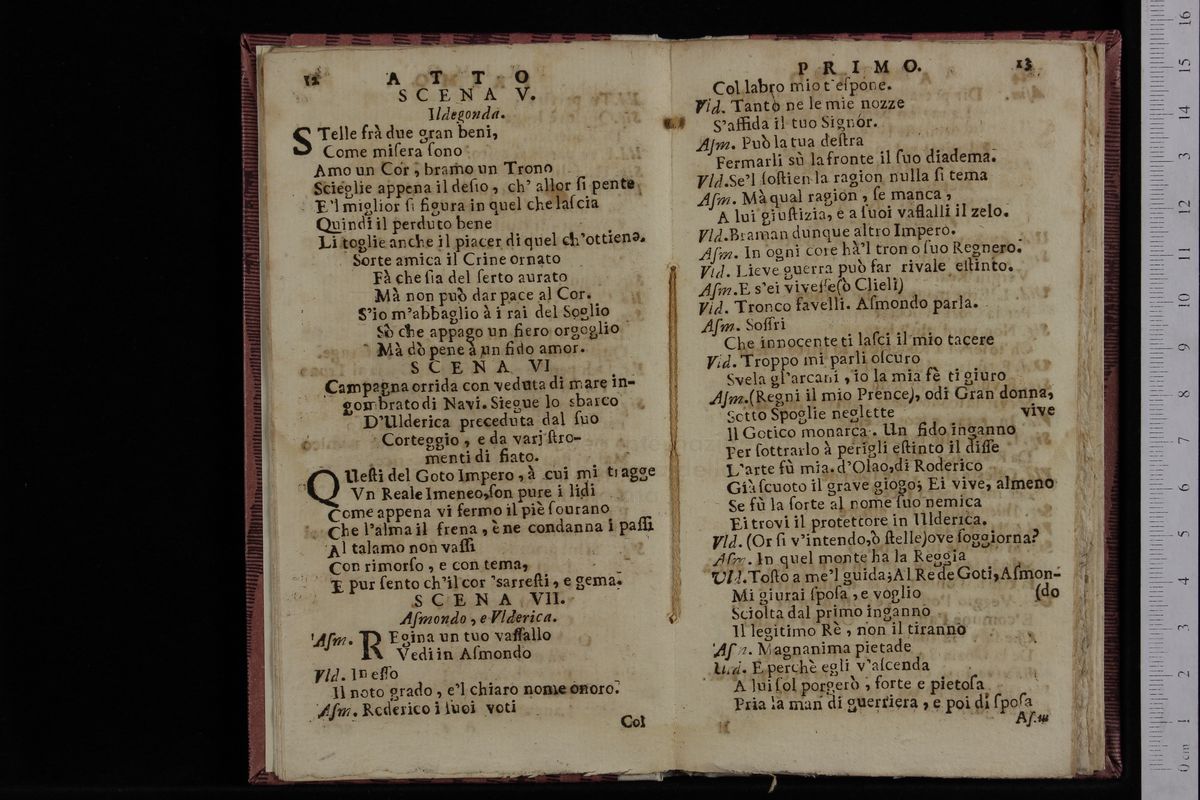 12 A T T O
S C E N A V.
Ildegonda.
STelle frà due gran beni,
Come miſera ſono
Amo un Cor, bramo un Trono
Scieglie appena il deſio, ch' allor ſi pente
E'l miglior ſi figura in quel che laſcia
Quindi il perduto bene
Li toglie anche il piacer di quel ch'ottiene.
Sorte amica il Crine ornato
Fà che ſia del ſerto aurato
Mà non può dar pace al Cor.
S'io m'abbaglio à i rai del Soglio
Sò che appago un fiero orgoglio
Mà dò pene à un fido amor.
S C E N A VI
Campagna orrida con veduta di mare in-
gombrato di Navi. Siegue lo sbarco
D'Ulderica preceduta dal ſuo
Corteggio, e da varj ſtro-
menti di fiato.
QUeſti del Goto Impero, à cui mi tragge
Vn Reale Imeneo, ſon pure i lidi
Come appena vi fermo il piè ſourano
Che l'alma il frena, è ne condanna i paſſi
Al talamo non vaſſi
Con rimorſo, e con tema,
E pur ſento ch'il cor 'sarreſti, e gema.
S C E N A VII.
Aſmondo, e Vlderica.
Aſm. REgina un tuo vaſſallo
Vedi in Aſmondo
Vld. In eſſo
Il noto grado, e'l chiaro nome onoro.
Aſm. Roderico i ſuoi voti
Col
P R I M O. 13
Col labro mio t'eſpone.
Vld. Tantò ne le mie nozze
S'affida il tuo Signor.
Aſm. Può la tua deſtra
Fermarli sù la fronte il ſuo diadema.
Vld. Se'l ſoſtien la ragion nulla ſi tema
Aſm. Mà qual ragion, ſe manca,
A lui giuſtizia, e a ſuoi vaſſalli il zelo.
Vld. Braman dunque altro Impero.
Aſm. In ogni core hà'l trono ſuo Regnero.
Vld. Lieve guerra può far rivale eſtinto.
Aſm. E s'ei viveſſe(ò Clieli)
Vld. Tronco favelli. Aſmondo parla.
Aſm. Soffri
Che innocente ti laſci il mio tacere
Vld. Troppo mi parli oſcuro
Svela gl'arcani, io la mia fè ti giuro
Aſm. (Regni il mio Prence), odi Gran donna,
Sotto Spoglie neglette vive
Il Gotico monarca. Un fido inganno
Per ſottrarlo à perigli eſtinto il diſſe
L'arte fù mia. d'Olao, di Roderico
Già ſcuoto il grave giogo; Ei vive, almeno
Se fù la ſorte al nome ſuo nemica
Ei trovi il protettore in Ulderica.
Vld. (Or ſi v'intendo, ò ſtelle) ove ſoggiorna?
Aſm. In quel monte ha la Reggia
Vld. Toſto a me'l guida; Al Re de Goti, Aſmon-
Mi giurai ſpoſa, e voglio (do
Sciolta dal primo inganno
Il legitimo Rè, non il tiranno
Aſm. Magnanima pietade
Vld. E perchè egli v'aſcenda
A lui ſol porgerò, forte e pietoſa
Pria la man di guerriera, e poi di ſpoſa
Aſm